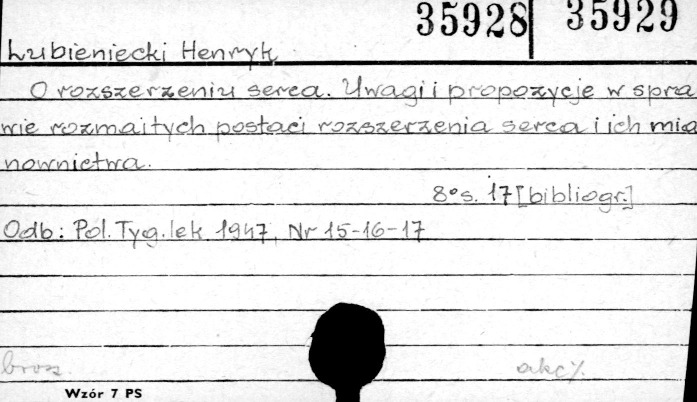 35928 35929
Lubieniecki Henryk
O rozszerzeniu serca. Uwagi i propozycje w spra
wie rozmaitych postaci rozszerzenia serca i ich mia
nownictwa.
8° s. 17 [bibliogr.]
Odb: Pol. Tyg. lek 1947, Nr 15-16-17
brosz.
Wzór 7 PS